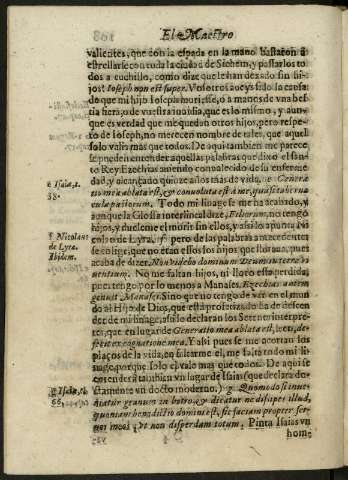 El Maestro
valientes, que con la espada en la mano bastaron à
estrellarse con toda la ciudad de Sichem, y passarlos to
dos a cuchillo, como dize que le han dexado sin hi-
jos? Ioseph non est super. Vosotros aueys sido la causa
do que mi hijo Ioseph muriesse, o a manos de vna bes
tia fiera, o de vuestra inuidia, que es lo mismo, y aun-
que es verdad que me quedan otros hijos, pero respe-
to de Ioseph, no merecen nombre de tales, que aquel
solo valia mas que todos. De aqui tambien me parece
se pueden entender aquellas palabras que dixo el san-
to Rey Ezechias auiendo conualecido de su enferme
dad, y alcançado quinze años mas de vida, e Genera
e Isaia, c.
38.
tio mea ablata est, & conuoluta est à me, quasi taberna
cula pastorum. Todo mi linage se me ha acabado, y
aunque la Glossa interlineal dize, Filiorum, no tengo
hijos, y dueleme el morir sin ellos, y assi lo apunta Ni
f Nicolaus
de Lyra.
Ibidem.
colao de Lyra, f pero de las palabras antecedentes
se colige, que no eran essos los hijos que lloraua, pues
acaba de dizer, Non videbo dominum Deum in terra vi
uentium. No me faltan hijos, ni lloro essa perdida,
pues tengo por lo menos a Manases. Ezechias autem
genuit Manases. Sino que no tengo de ver en el mun
do al Hijo de Dios, que està profetizado ha de descen
der de mi linage, assi lo declararon los Setenta interpre-
tes, que en lugar de Generatio mea ablata est, leen, de-
fecit ex cognatione mea. Y assi pues se me acortan los
plaços de la vida, en faltarme el, me falta todo mi li-
nage, porque solo el vale mas que todos. De aqui se
entenderà tambien vn lugar de Isaias (que declara do-
g Isaia, c.
66,
ctamente vn docto moderno) g Quomodo si inue-
niatur granum in botro, & dicatur ne disipes illud,
quoniam benedictio domini est, sic faciam propter ser-
uos meos, vt non disperdam totum. Pinta Isaias vn
home